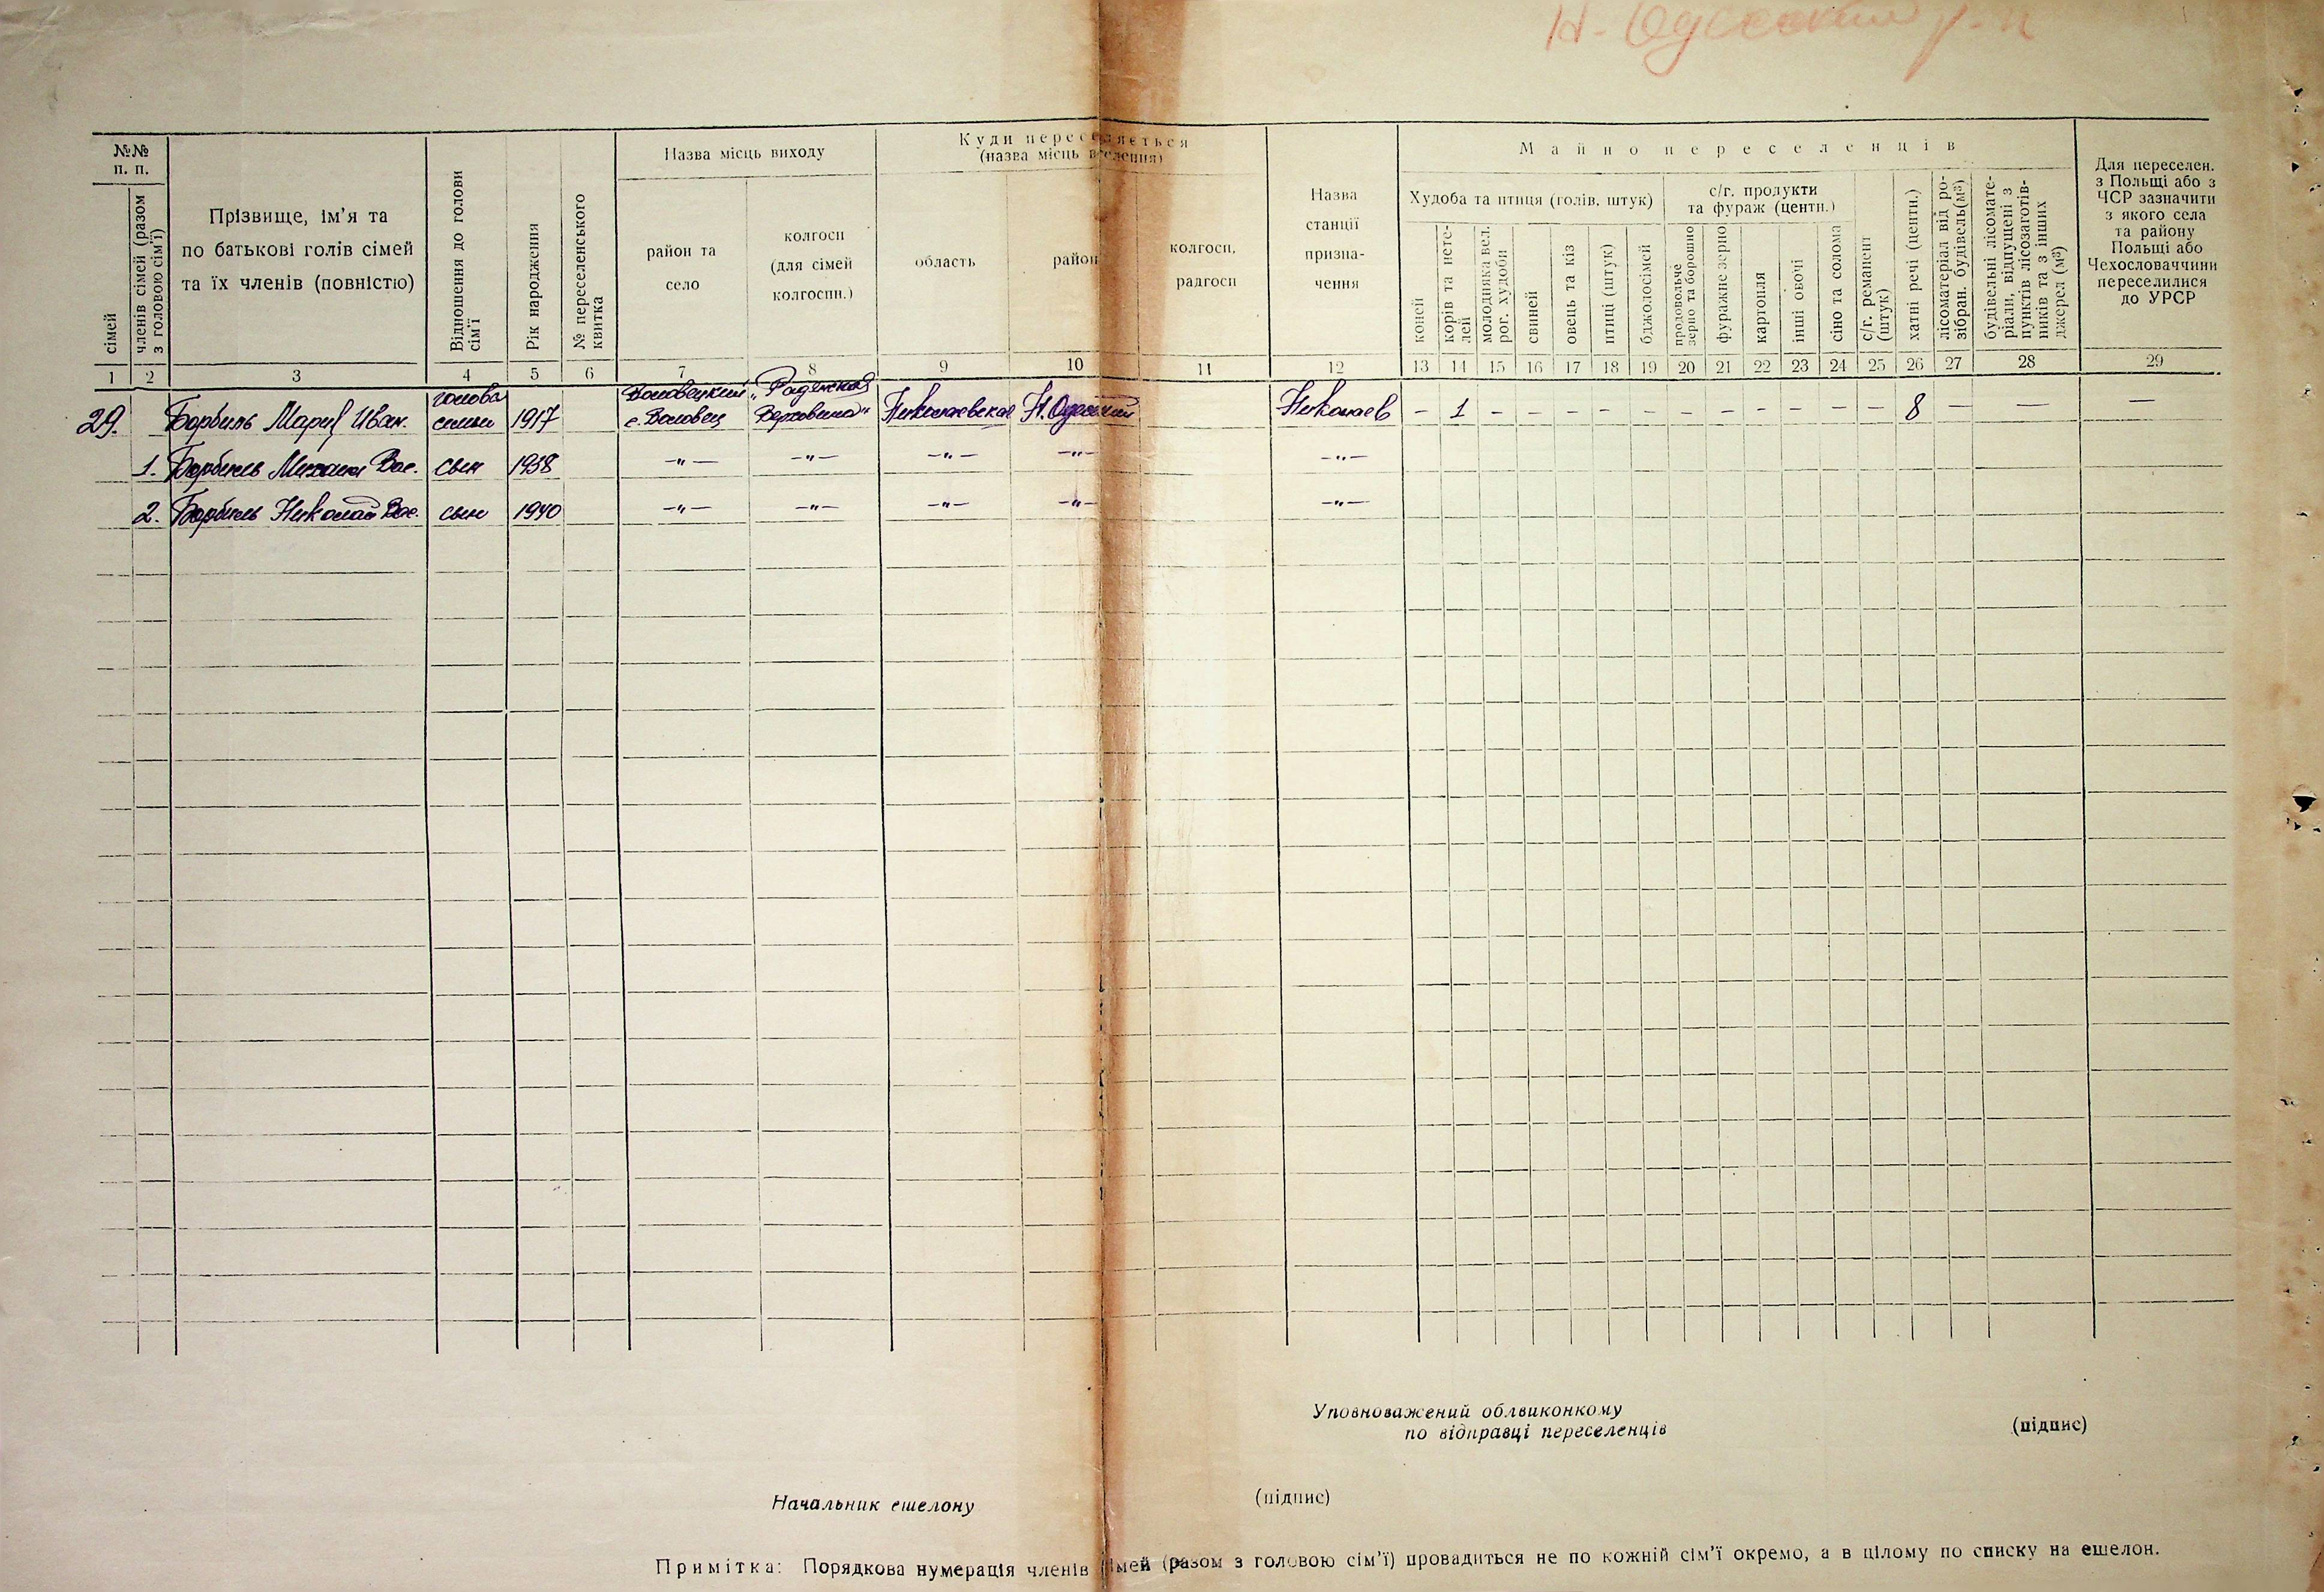 Н.-Одесский р-н
№№ п. п.
сімей
членів сімей (разом з головою сім'ї)
Прізвище, ім'я та
по батькові голів сімей
та їх членів (повністю)
Відношення до голови сім'ї
Рік народження
№ переселенського квитка
Назва місць виходу
район та
село
колгосп
(для сімей
колгоспн.)
Куди переселяється
(назва місць вселення)
область
район
колгосп,
радгосп
Назва
станції
призна-
чення
Майно переселенців
Худоба та птиця (голів, штук)
коней
корів та нете-
лей
молодняка вел.
рог. худоби
свиней
овець та кіз
птиці (штук)
бджолосімей
с/г. продукти
та фураж (центн.)
продовольче
зерно та борошно
фуражне зерно
картопля
інші овочі
сіно та солома
с/г. реманент
(штук)
хатні речі (центн.)
лісоматеріал від ро-
зібран. будівель(м³)
будівельні лісомате-
ріали, відпущені з
пунктів лісозаготів-
ників та з інших
джерел (м³)
Для переселен.
з Польщі або з
ЧСР зазначити
з якого села
та району
Польщі або
Чехословаччини
переселилися
до УРСР
1 2 3 4 5 6 7 8 9 10 11 12 13 14 15 16 17 18 19 20 21 22 23 24 25 26 27 28 29
29. Борбиль Мария Иван. голова семьи 1917 Воловецкий с. Воловец „Радянська Верховина" Николаевская Н. Одесский Николаев - 1 - - - - - - - - - - - 8 - - -
1. Борбиль Михаил Вас. сын 1938 -"- -"- -"- -"- -"-
2. Борбиль Николай Вас. сын 1940 -"- -"- -"- -"- -"-
Уповноважений облвиконкому
по відправці переселенців (підпис)
Начальник ешелону (підпис)
Примітка: Порядкова нумерація членів сімей (разом з головою сім'ї) провадиться не по кожній сім'ї окремо, а в цілому по списку на ешелон.